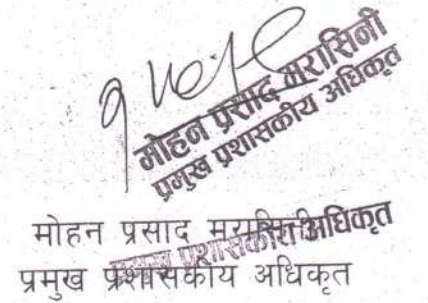 मोहन प्रसाद मरासिनी
प्रमुख प्रशासकीय अधिकृत
मोहन प्रसाद मरासिनी
प्रमुख प्रशासकीय अधिकृत
प्रमुख प्रशासकीय अधिकृत